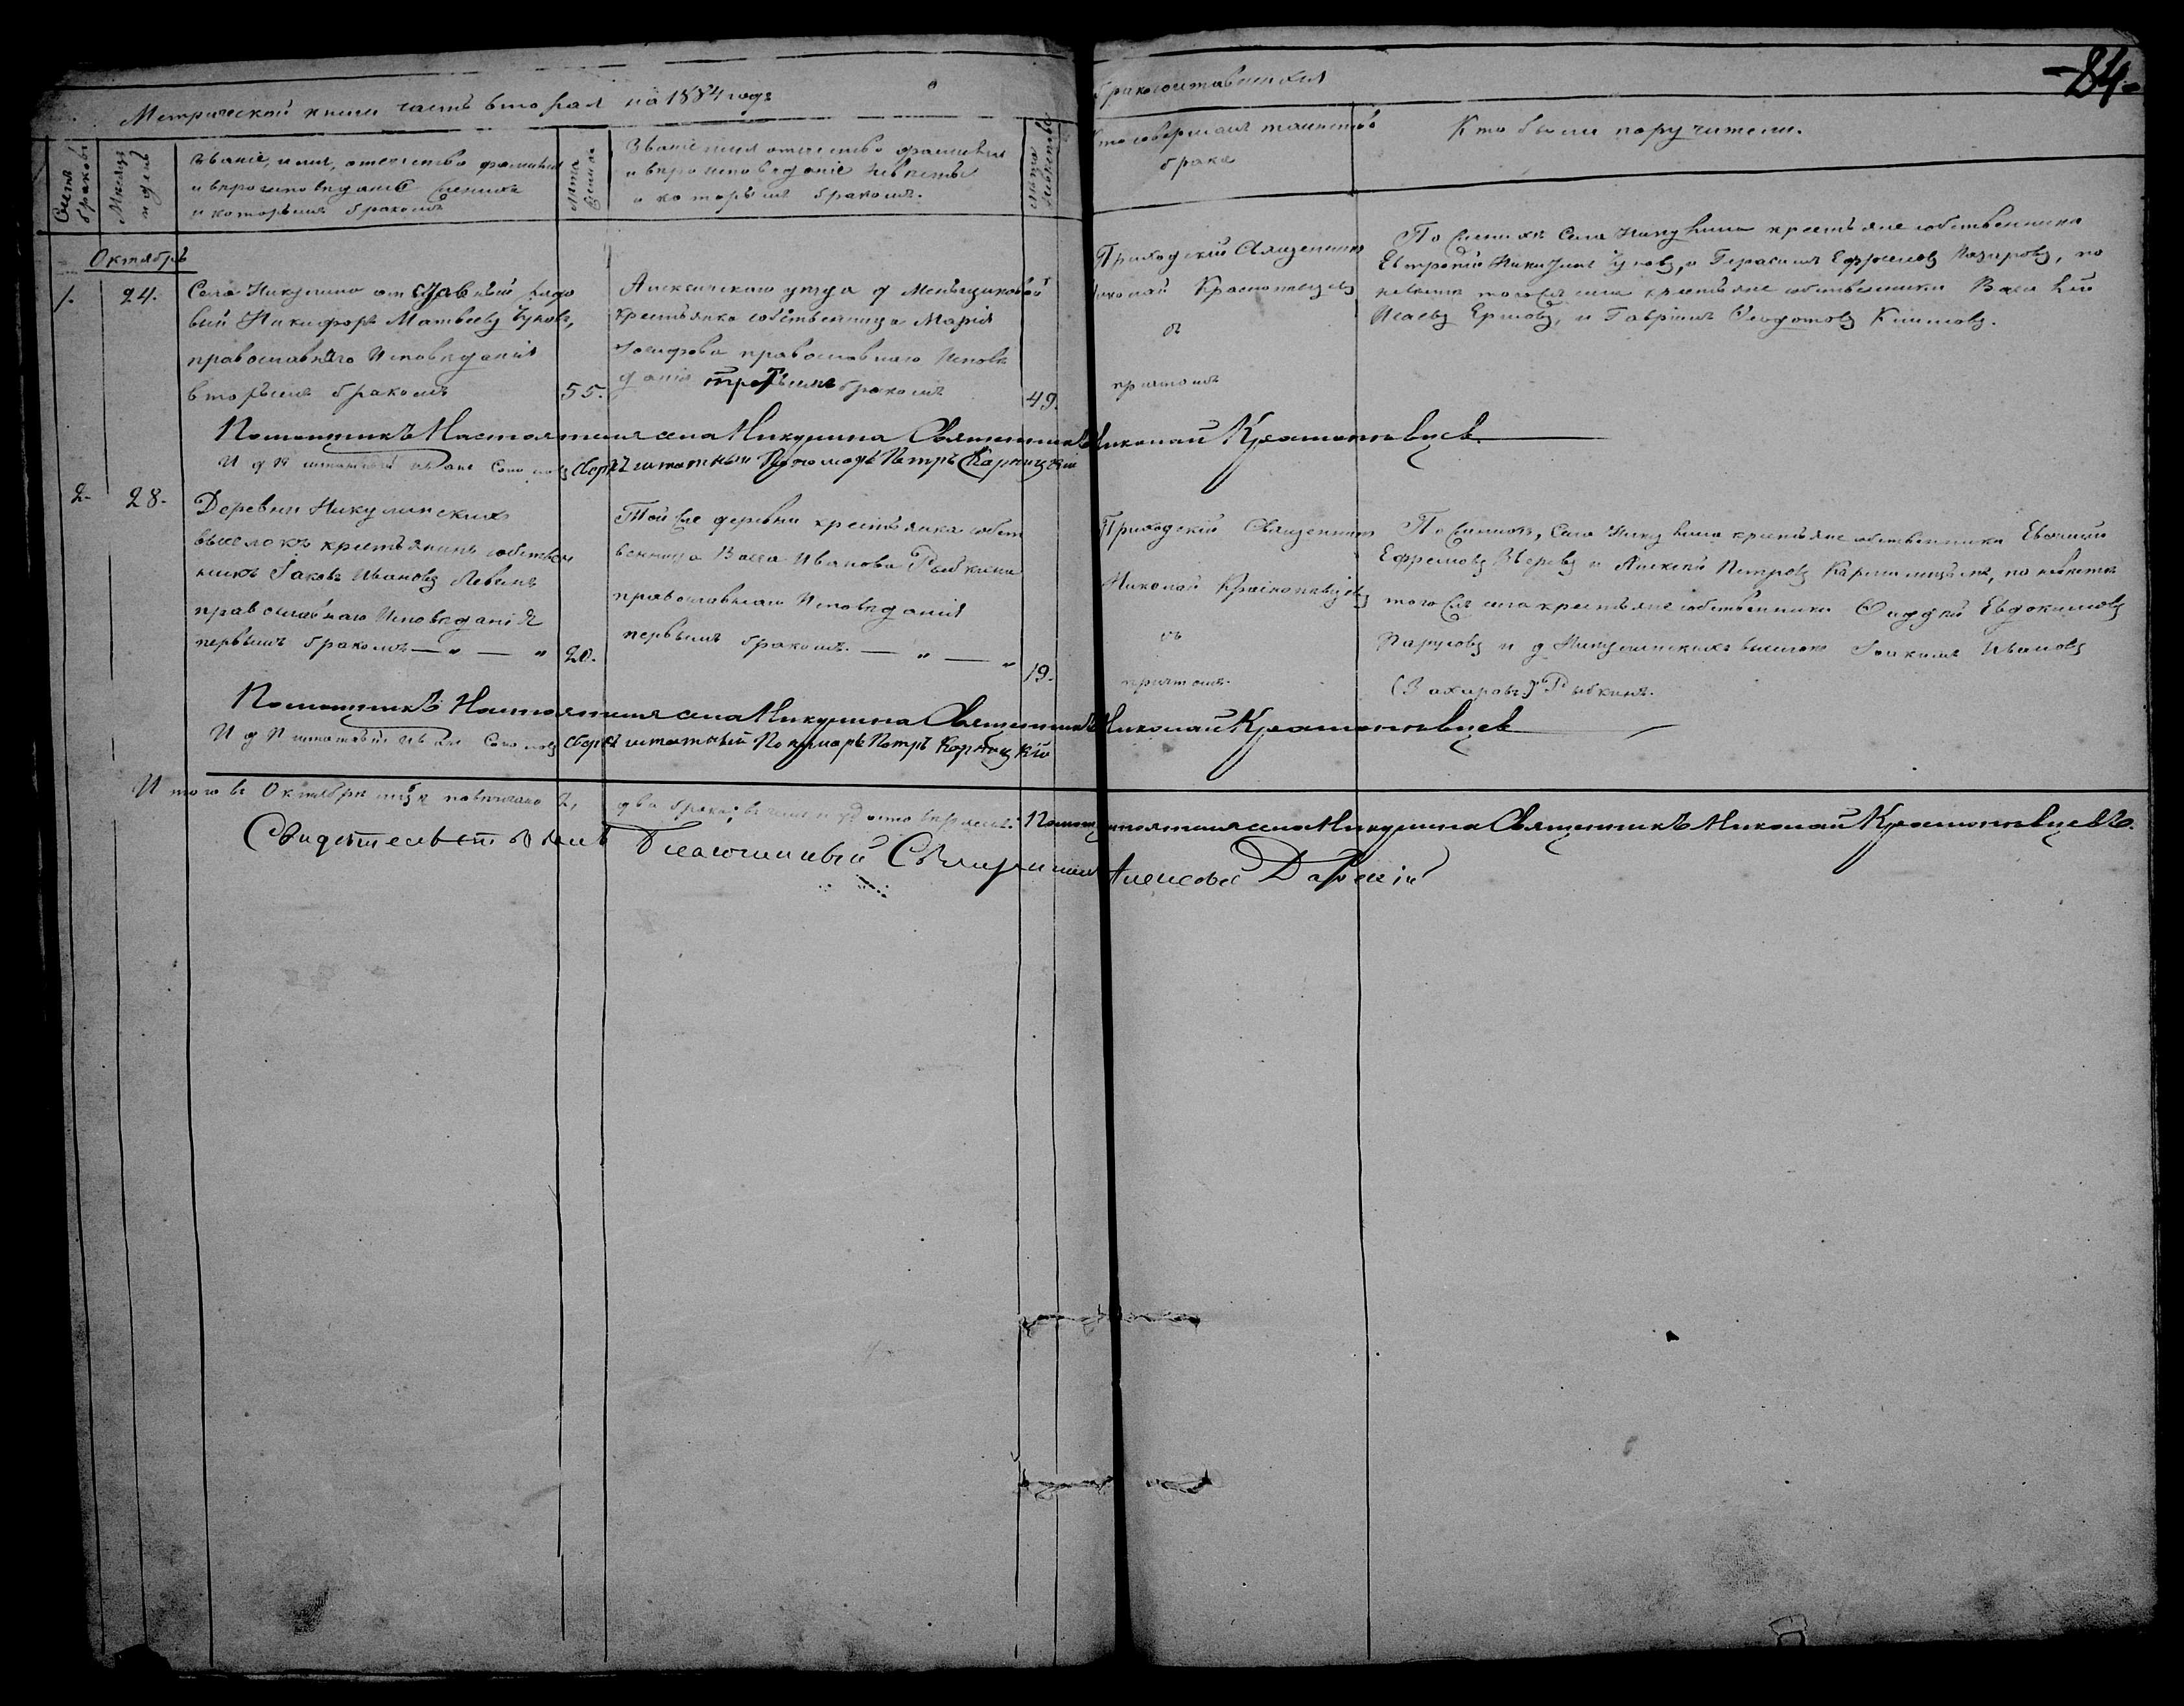 Метрической книги часть вторая на 1884 годъ
бракосочетавшихся
-84-
Счетъ браковъ
Мѣсяцъ и день
Званіе, имя, отечество фамилія
и вѣроисповѣданіе жениха
и которымъ бракомъ
Лѣта жениха
Званіе имя отечество фамилія
и вѣроисповѣданіе невѣсты
и которымъ бракомъ.
Лѣта невѣсты
Кто совершалъ таинство
брака
Кто были поручители.
Октябрь
1. 24.
Села Никулина отставный рядо
вый Никифоръ Матвеевъ Чуковъ,
православнаго Исповѣданія
вторымъ бракомъ
55.
уѣзда д Меньщиковой
крестьянка собственница Марія
Іосифова православнаго Исповѣ
данія третьимъ бракомъ
49.
Приходскій Священникъ
Николай Краснопѣвцевъ
съ
причтомъ
По женихѣ Села Никулина крестьяне собственники
Никитинъ Чуковъ, и Герасимъ Ефремовъ Назаровъ, по
невѣсте того же села крестьяне собственники Василій
Исаевъ Ершовъ, и Гавріилъ Ѳеодотовъ Климовъ.
Помощникъ Настоятеля села Никулина Священникъ Николай Краснопѣвцевъ
И д П штатный Соколовъ Сверхъ штатный Пономарь Петръ Карницкій
2. 28.
Деревни Никулинскихъ
выселокъ крестьянинъ собствен
никъ Іаковъ Ивановъ Левинъ
православнаго Исповѣданія
первымъ бракомъ — " — "
20.
Той же деревни крестьянка собст
венница Васса Иванова Рыбкина
православнаго Исповѣданія
первымъ бракомъ. — " — "
19.
Приходскій Священникъ
Николай Краснопѣвцевъ
съ
причтомъ.
По женихѣ, Села Никулина крестьяне собственники
Ефремовъ Зверевъ и Алексѣй Петровъ по невѣсте
того же села крестьяне собственники Ѳаддей Евдокимовъ
Парусовъ и д Никулинскихъ выселокъ Іоакимъ Ивановъ
(Захаровъ) Рыбкинъ.
Помощникъ Настоятеля села Никулина Священникъ Николай Краснопѣвцевъ
И д П штатный Соколовъ Сверхъ штатный Пономарь Петръ Карницкій
Итого въ Октябрѣ мцѣ повѣнчано 2, два брака; Помощ Настоятеля села Никулина Священникъ Николай Краснопѣвцевъ.
Свидѣтельствовалъ Благочинный Священникъ Алексѣй